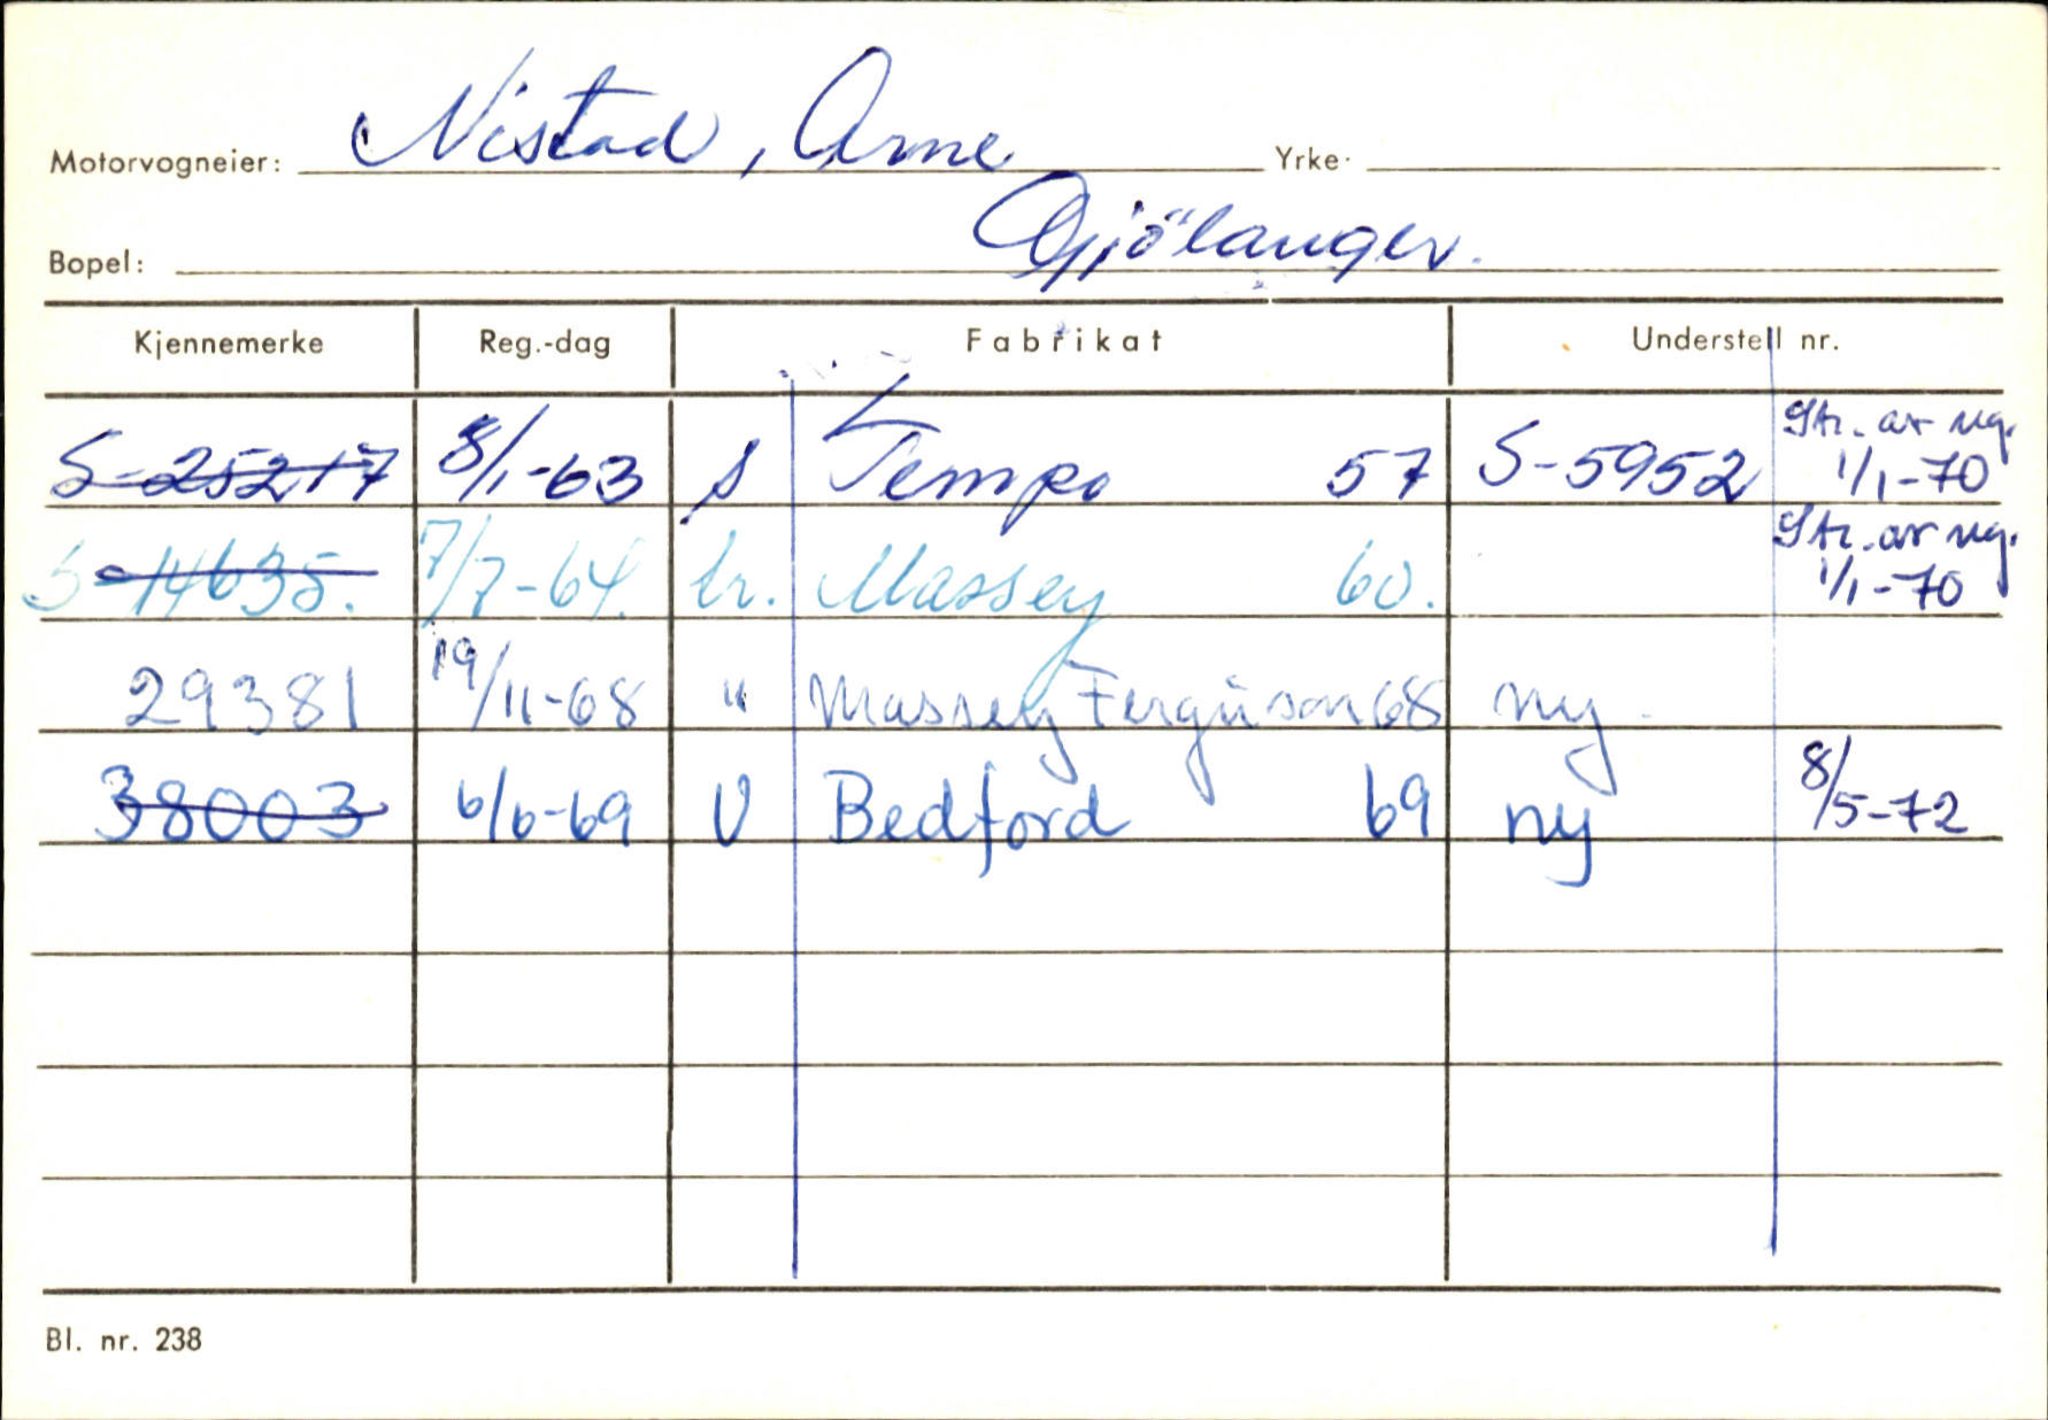 Motorvogneier: Nistad, Arne Yrke.
Bopel: Gjölanger.
Kjennemerke Reg.-dag Fabrikat Understell nr.
S-25217 8/1-63 s Tempo 57 S-5952 Str. av reg. 1/1-70
S-14635. 7/7-64. tr. Massey 60. Str. av reg. 1/1-70
29381 19/11-68 " Massey Ferguson 68 ny
38003 6/6-69 V Bedford 69 ny 8/5-72
Bl. nr. 238